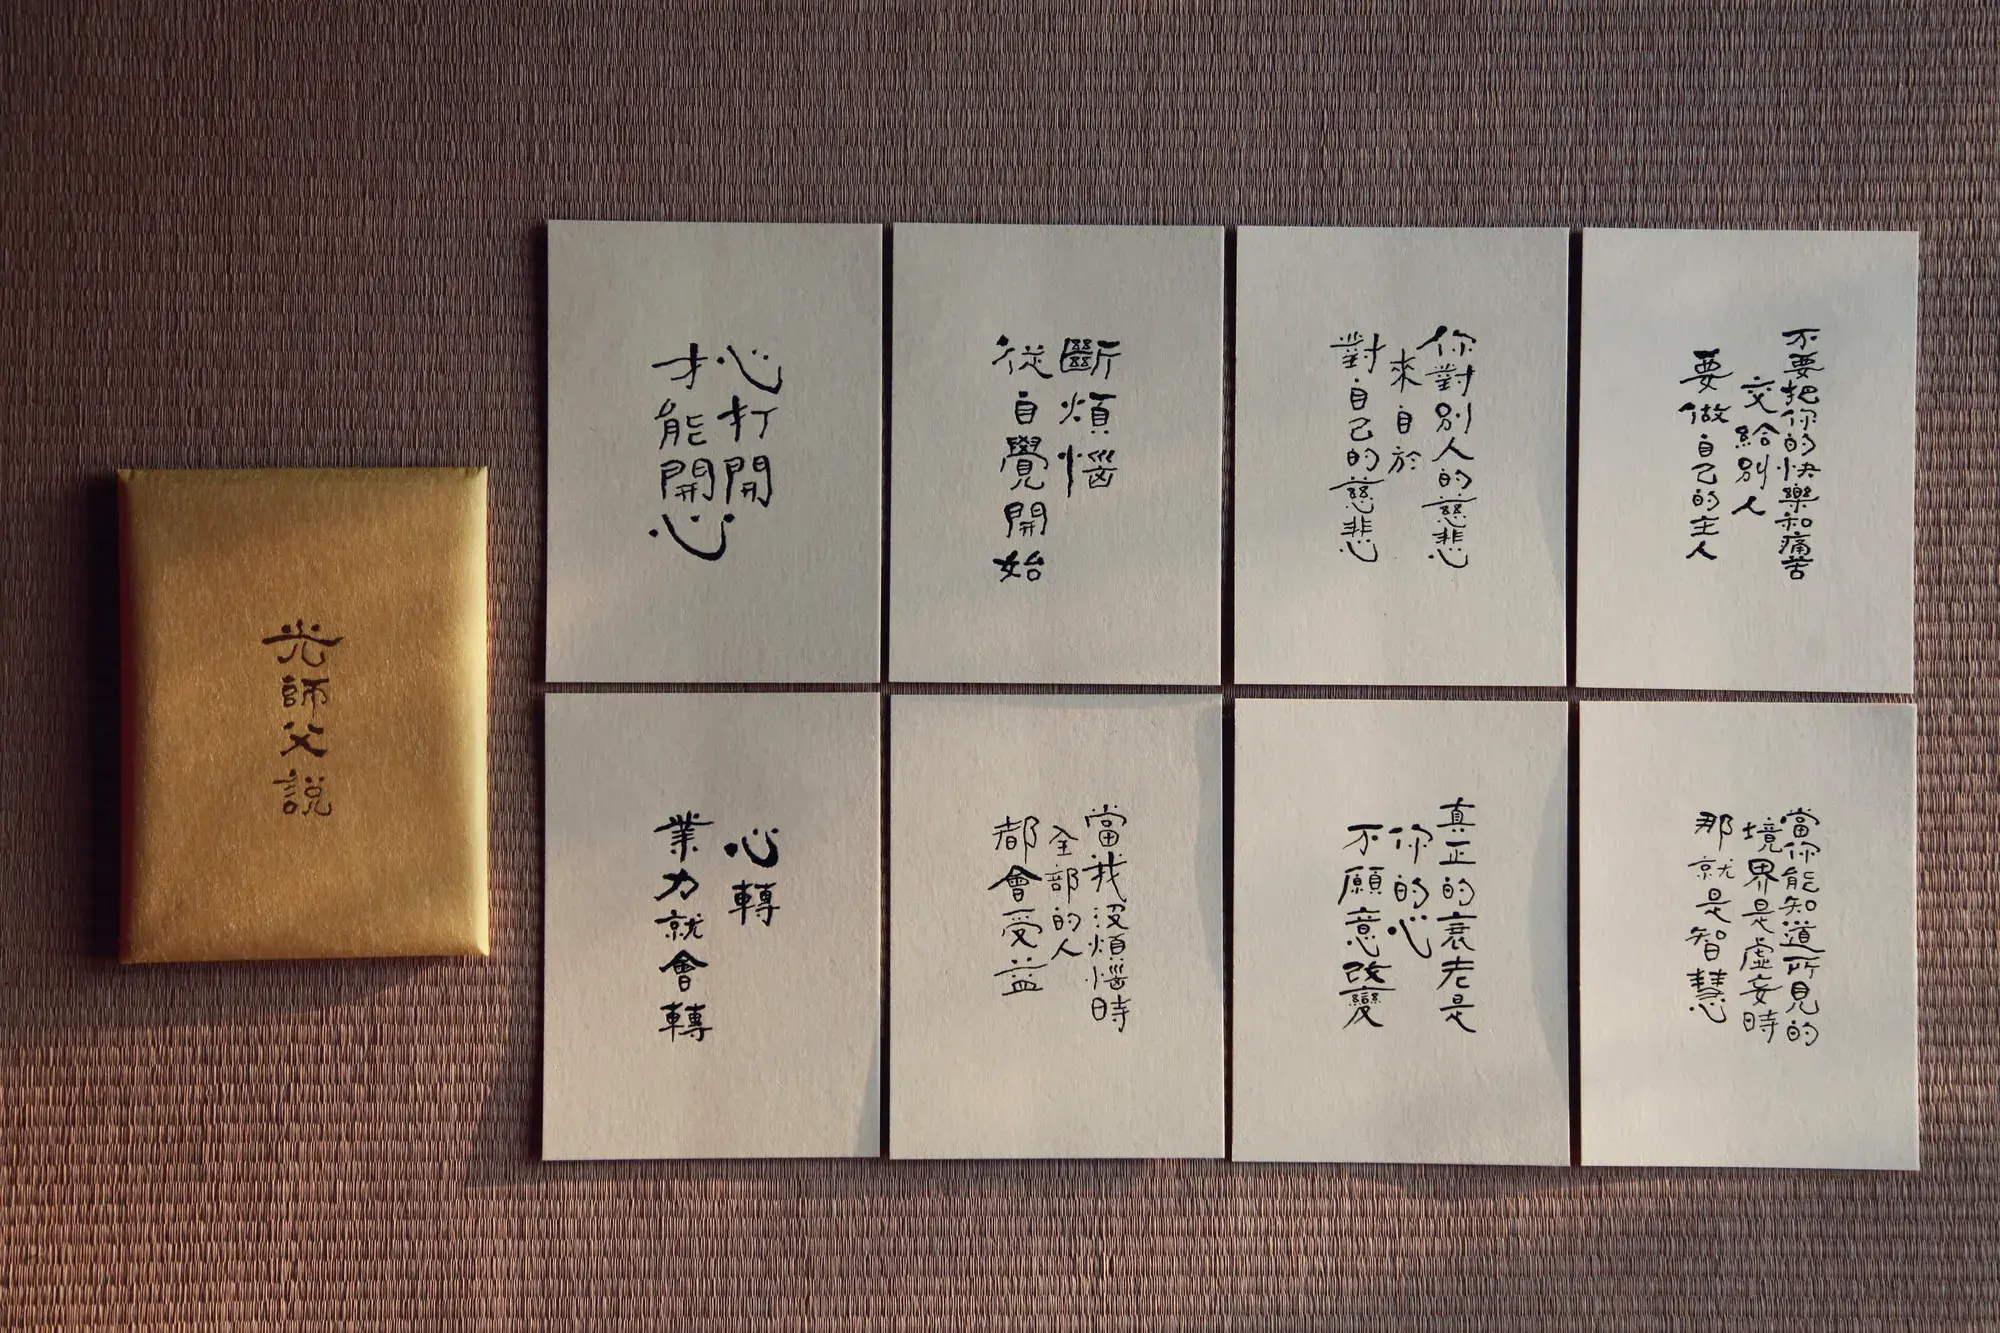 光師父説
心打開
才能開心
斷煩惱
從自覺開始
你對別人的慈悲
來自於
對自己的慈悲
不要把你的快樂和痛苦
交給別人
要做自己的主人
心轉
業力就會轉
當我沒煩惱時
全部的人
都會受益
真正的衰老是
你的心
不願意改變
當你能知道所見的
境界是虛妄時
那就是智慧